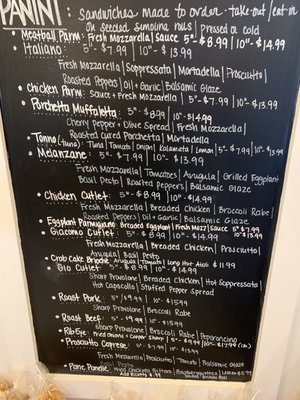 PANINI
Sandwiches made to order - take-out / eat in
on Seeded Semolina rolls | pressed or cold
Meatball Parm: Fresh Mozzarella | Sauce 5"- $8.99 | 10"- $14.99
Italiano: 5"- $7.99 | 10"- $13.99
Fresh Mozzarella | Soppressata | Mortadella | Prosciutto |
Roasted Peppers | Oil + Garlic | Balsamic Glaze
Chicken Parm: Sauce + Fresh Mozzarella | 5"- $7.99 | 10"- $13.99
Porchetta Muffaletta: 5"- $8.99 | 10"- $14.99
Cherry Pepper + Olive Spread | Fresh Mozzarella |
Roasted Cured Porchetta | Mortadella
Tonno (tuna): Tuna | Tomato | Onion | Kalamata | Lemon | 5"- $7.99 | 10"- $13.99
Melanzane: 5"- $7.99 | 10"- $13.99
Fresh Mozzarella | Tomatoes | Arugula | Grilled Eggplant
Basil Pesto | Roasted Peppers | Balsamic Glaze
Chicken Cutlet: 5"- $8.99 | 10"- $14.99
Fresh Mozzarella | Breaded Chicken | Broccoli Rabe |
Roasted Peppers | Oil + Garlic | Balsamic Glaze
Eggplant Parmigiano: Breaded Eggplant | Fresh Mozz | Sauce 5" $7.99 10" $13.99
Giacomo Cutlet: 5"- $8.99 | 10"- $14.99
Fresh Mozzarella | Breaded Chicken | Prosciutto |
Arugula | Basil Pesto
Crab Cake Brioche: Arugula | Tomato | Long Hot Aioli $11.99
Gio Cutlet: 5"- $8.99 | 10"- $14.99
Sharp Provolone | Breaded Chicken | Hot Soppressata |
Hot Capocollo | Stuffed Pepper Spread
Roast Pork: 5"- $9.99 | 10"- $15.99
Sharp Provolone | Broccoli Rabe
Roast Beef: 5"- $9.99 | 10"- $15.99
Sharp Provolone | Broccoli Rabe | Peperoncino
Rib Eye: Fried Onions + Cooper Sharp | 5"- $9.99 | 10"- $17.99
Prosciutto Caprese: 5"- $7.99 | 10"- $13.99
Fresh Mozzarella | Prosciutto | Tomato | Balsamic Glaze
Basil Pesto
Pane Panelle: Fried Chickpea Fritters
Add Ricotta